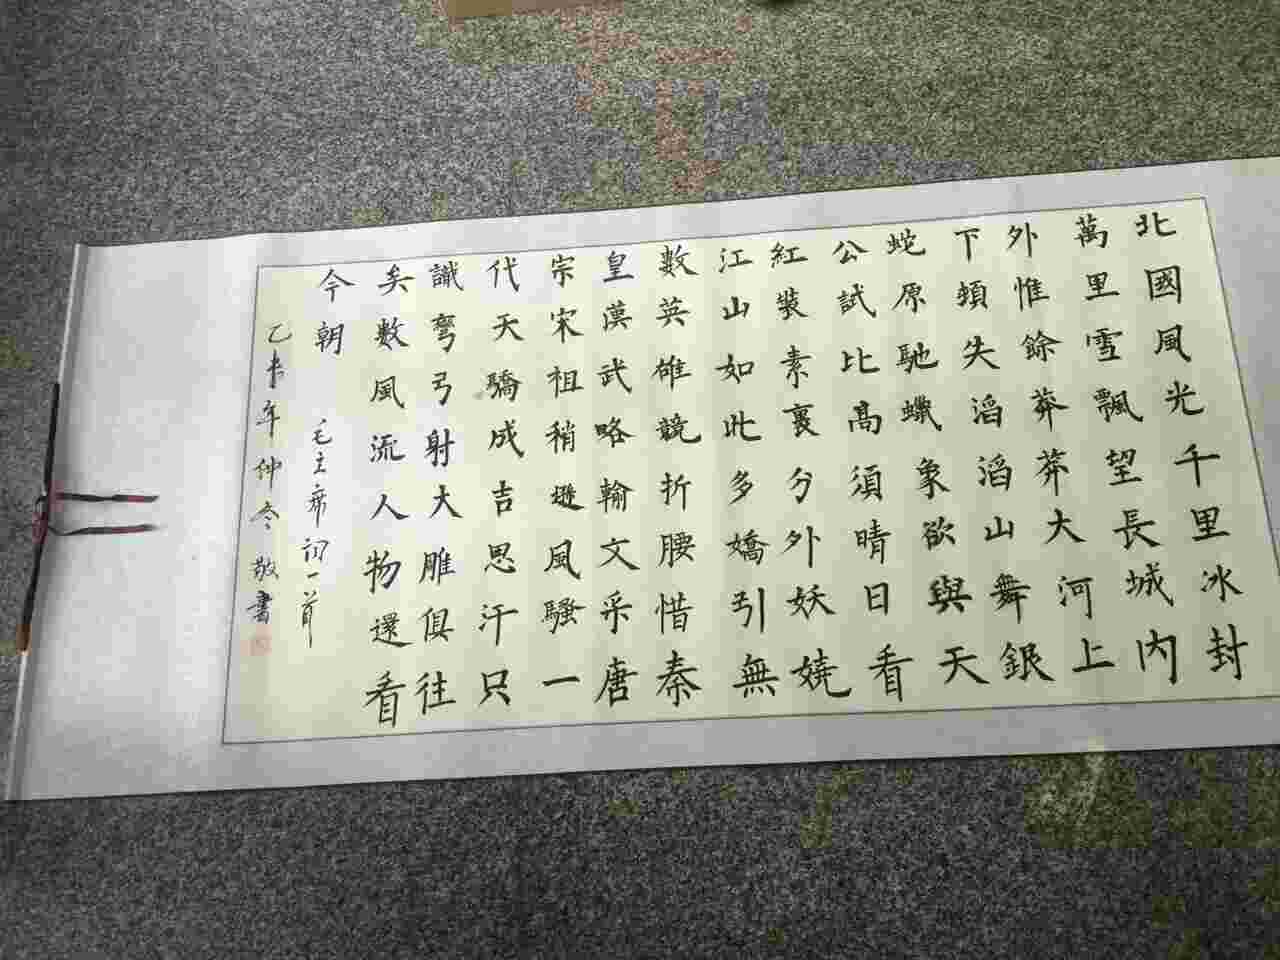 北國風光千里冰封
萬里雪飄望長城內
外惟餘莽莽大河上
下頓失滔滔山舞銀
蛇原馳蠟象欲與天
公試比高須晴日看
紅裝素裹分外妖嬈
江山如此多嬌引無
數英雄競折腰惜秦
皇漢武略輸文采唐
宗宋祖稍遜風騷一
代天驕成吉思汗只
識彎弓射大雕俱往
矣數風流人物還看
今朝 毛主席词一首
乙未年仲冬敬書